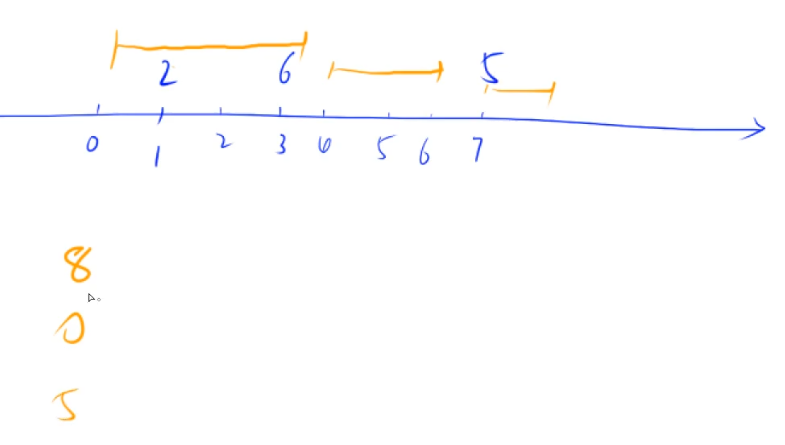 2 6 5
0 1 2 3 4 5 6 7
8
0
5